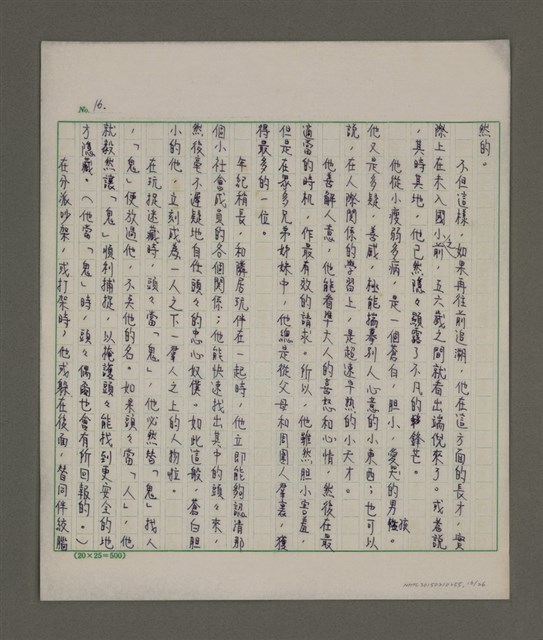 No. 16.
然的。
不但這樣，如果再往前追溯，他在這方面的長才，實
際上在未入國小之前，五六歲之間就看出端倪來了。或者說
，其時其地，他已然隱々顯露了不凡的鋒芒。
他從小瘦弱多病，是一個蒼白，胆小，愛哭的男孩。
他又是多疑，善感，極能揣摹別人心意的小東西；也可以
說，在人際關係的學習上，是超速早熟的小天才。
他善解人意，他能看準大人的喜怒和心情，然後在最
適當的時机，作最有效的請求。所以，他雖然胆小害羞，
但是在眾多兄弟姊妹中，他總是從父母和周圍人羣裏，獲
得最多的一位。
年紀稍長，和鄰居玩伴在一起時，他立即能夠認清那
個小社會成員的各個關係，他能快速找出其中的頭々來，
然後毫不遲疑地自任頭々的忠心奴僕。如此這般，蒼白胆
小的他，立刻成爲一人之下一羣人之上的人物啦。
在玩捉迷藏時，頭々當「鬼」，他必然替「鬼」找人
，「鬼」便放過他，不先他的名。如果頭々當「人」，他
就毅然讓「鬼」順利捕捉，以掩護頭々能找到更安全的地
方隱藏。（他當「鬼」時，頭々偶爾也會有所回報的。）
在分派吵架，或打架時，他或躲在後面，替同伴絞腦
(20×25=500)